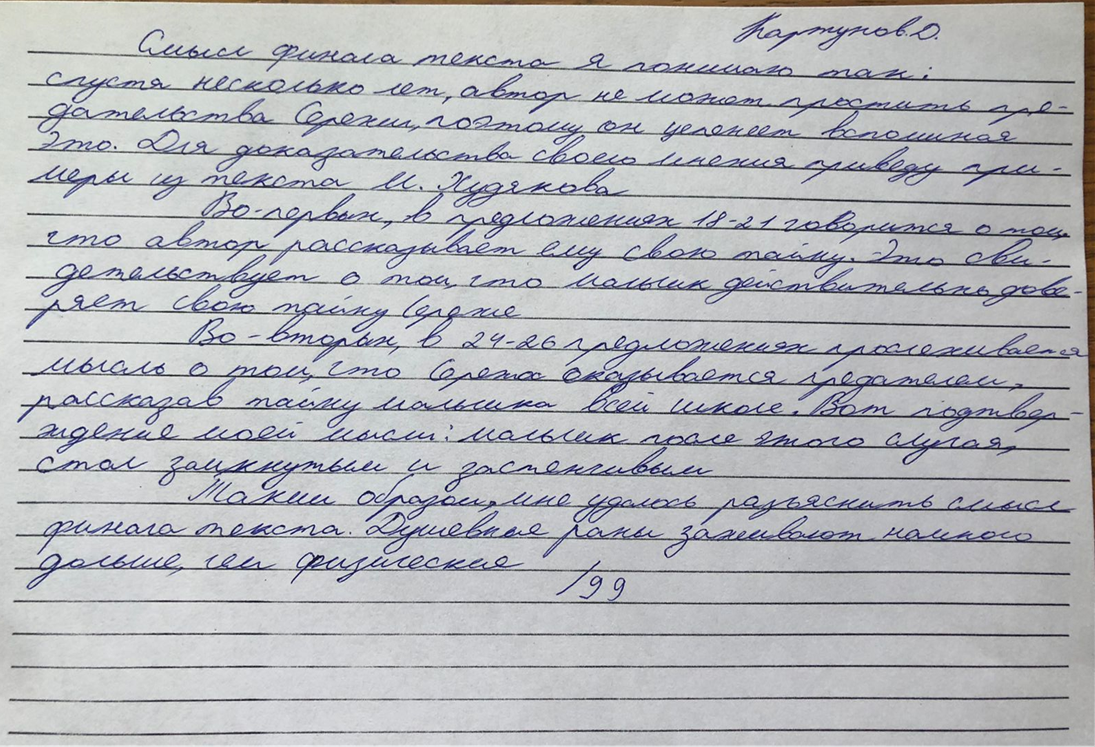 Картунов.Д.
Смысл финала текста я понимаю так:
спустя несколько лет, автор не может простить пре-
дательства Сережи, поэтому он целенеет вспоминая
это. Для доказательства своего мнения приведу при-
меры из текста И. Худякова
Во-первых, в предложениях 18-21 говорится о том,
что автор рассказывает ему свою тайну. Это сви-
детельствует о том, что мальчик действительно дове-
ряет свою тайну Сереже
Во-вторых, в 24-26 предложениях прослеживается
мысль о том, что Сережа оказывается предателем,
рассказав тайну мальчика всей школе. Вот подтвер-
ждение моей мысли: мальчик после этого случая,
стал замкнутым и застенчивым
Таким образом, мне удалось разъяснить смысл
финала текста. Душевные раны заживают намного
дольше, чем физические
/99